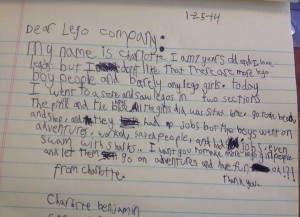 1-25-14
Dear Lego company:
My name is Charlotte. I am 7 years old and I love
legos but I don't like that there are more lego
boy people and barely any lego girls. today
I went to a store and saw legos in two sections
The pink and the blue. All the girls did was sit at home, go to the beach,
and shop, and they had no jobs but the boys went on
adventures, worked, saved people, and had jobs, even
swam with sharks. I want you to make more lego girl people
and let them go on adventures and have fun ok!?!
Thank you.
from Charlotte.
Charlotte benjamin